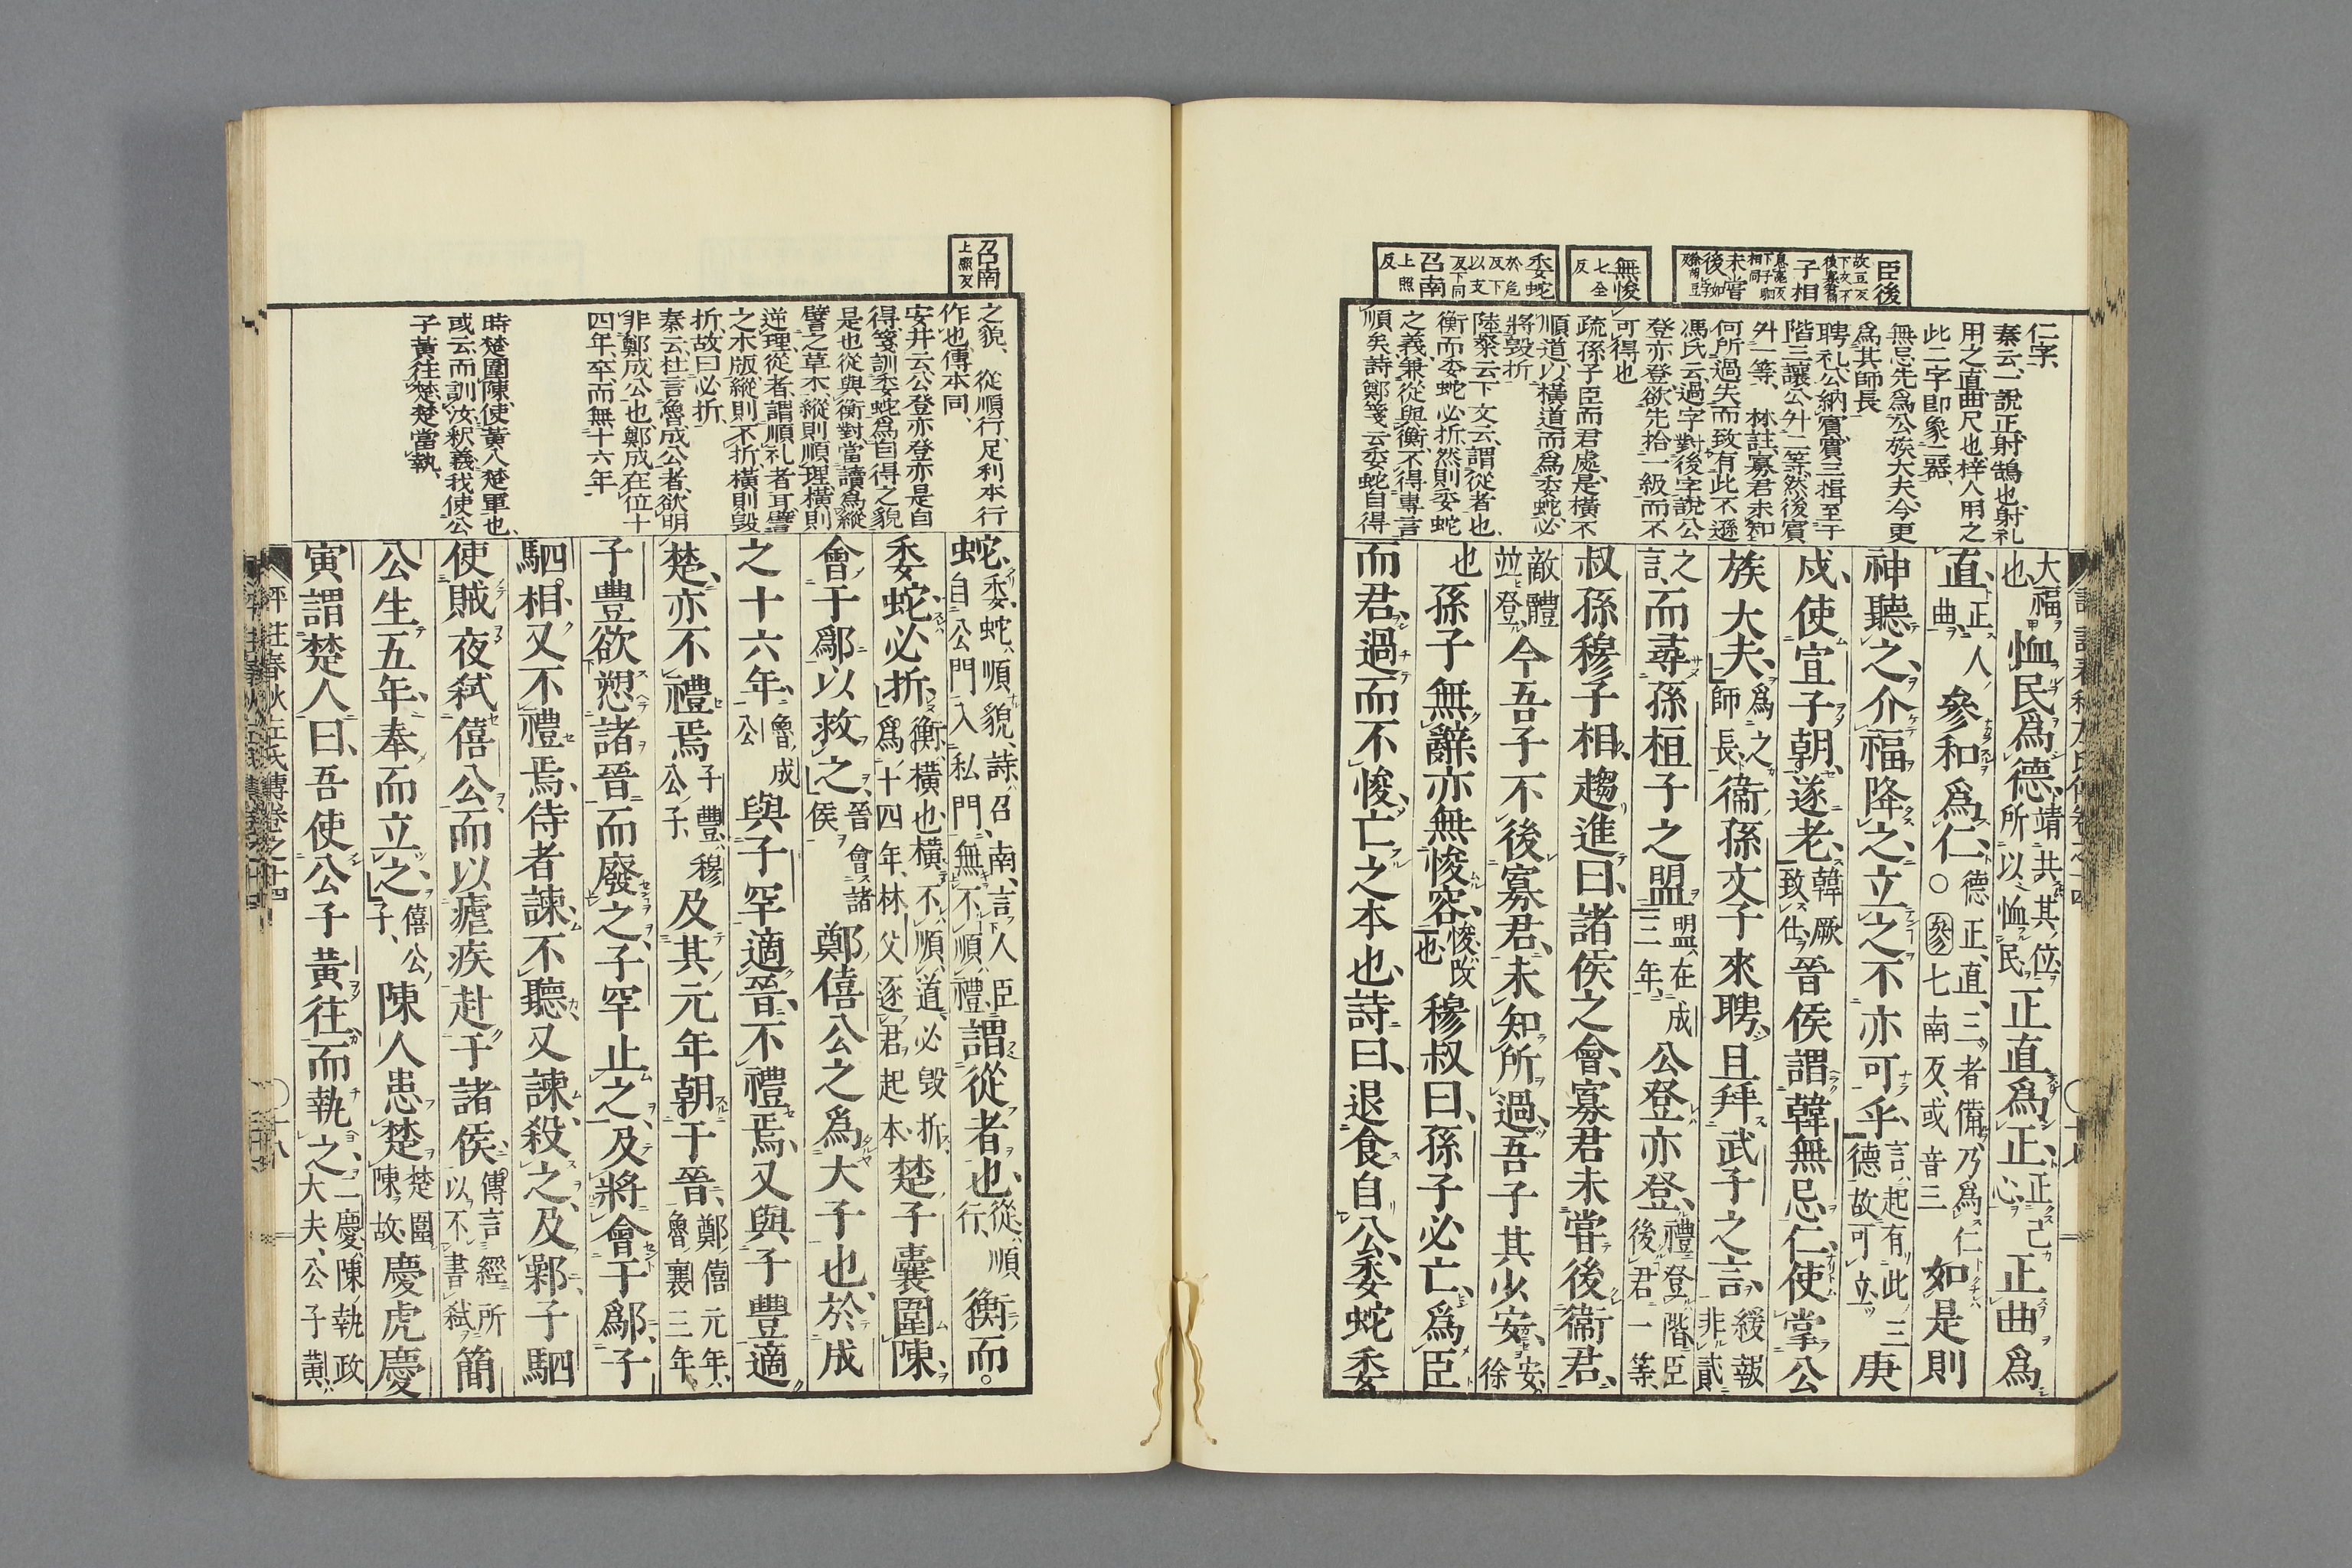 臣後
故豆反
下文不
後寡君同
子相
息亮反
下子駟
相同
未嘗
後
如字
徐胡豆
反
無悛
七全
反
委蛇
於危
反下
以支
反下同
召南
上照
反
仁字
秦云一說正射鵠也射礼
用之直曲尺也梓人用之
此二字即象二器
無忌先爲公族大夫今更
爲其師長
聘礼公納賓賓三揖至于
階三讓公升二等然後賓
升一等 林註寡君未知
何所過失而致有此不遜
馮氏云過字對後字說公
登亦登欲先拾一級而不
可得也
疏孫子臣而君處是橫不
順道以橫道而爲委蛇必
將毀折
陸粲云下文云謂從者也
衡而委蛇必折然則委蛇
之義兼從與衡不得專言
順矣詩鄭箋云委蛇自得
大福
也 恤民爲德 靖共其位
所以恤民 正直爲正 正己
心 正曲爲
直 正人
曲 參和爲仁 德正直三者備乃爲仁
○參七南反或音三 如是則
神聽之介福降之立之不亦可乎 言起有此三
德故可立 庚
戌使宣子朝遂老 韓厥
致仕 晉侯謂韓無忌仁使掌公
族大夫 爲之
師長 衞孫文子來聘且拜武子之言 緩報
非貳
之
言 而尋孫桓子之盟 盟在成
三年 公登亦登 禮登階臣
後君一等
叔孫穆子相趨進曰諸侯之會寡君未嘗後衞君
敵體
並登 今吾子不後寡君未知所過吾子其少安 安
徐
也 孫子無辭亦無悛容 悛改
也 穆叔曰孫子必亡爲臣
而君過而不悛亡之本也詩曰退食自公委蛇委
召南
上照反
之貌 從順行足利本行
作也傳本同
安井云公登亦登亦是自
得箋訓委蛇爲自得之貌
是也從與衡對當讀爲縱
譬之草木縱則順理橫則
逆理從者謂順礼者可譬
之木版縱則不折橫則毀
折故曰必折
秦云杜言魯成公者欲明
非鄭成公也鄭成在位十
四年卒而無十六年
時楚圍陳使黃入楚軍也
或云而訓汝釈義我使公
子黃往楚楚當執
蛇 委蛇順貌詩召南言人臣
自公門入私門無不順禮 謂從者也 從順
行 衡而
委蛇必折 衡橫也橫不順道必毀折
爲十四年林父逐君起本 楚子囊圍陳
會于鄬以救之 晉會諸
侯 鄭僖公之爲大子也於成
之十六年 魯成
公 與子罕適晉不禮焉又與子豐適
楚亦不禮焉 子豐穆
公子 及其元年朝于晉 鄭僖元年
魯襄三年
子豐欲愬諸晉而廢之子罕止之及將會于鄬子
駟相又不禮焉侍者諫不聽又諫殺之及鄵子駟
使賊夜弒僖公而以瘧疾赴于諸侯 傳言經所
以不書弒 簡
公生五年奉而立之 僖公
子 陳人患楚 楚圍
陳故 慶虎慶
寅謂楚人曰吾使公子黃往而執之 二慶陳執政
大夫公子黃
評註春秋左氏傳卷之十四